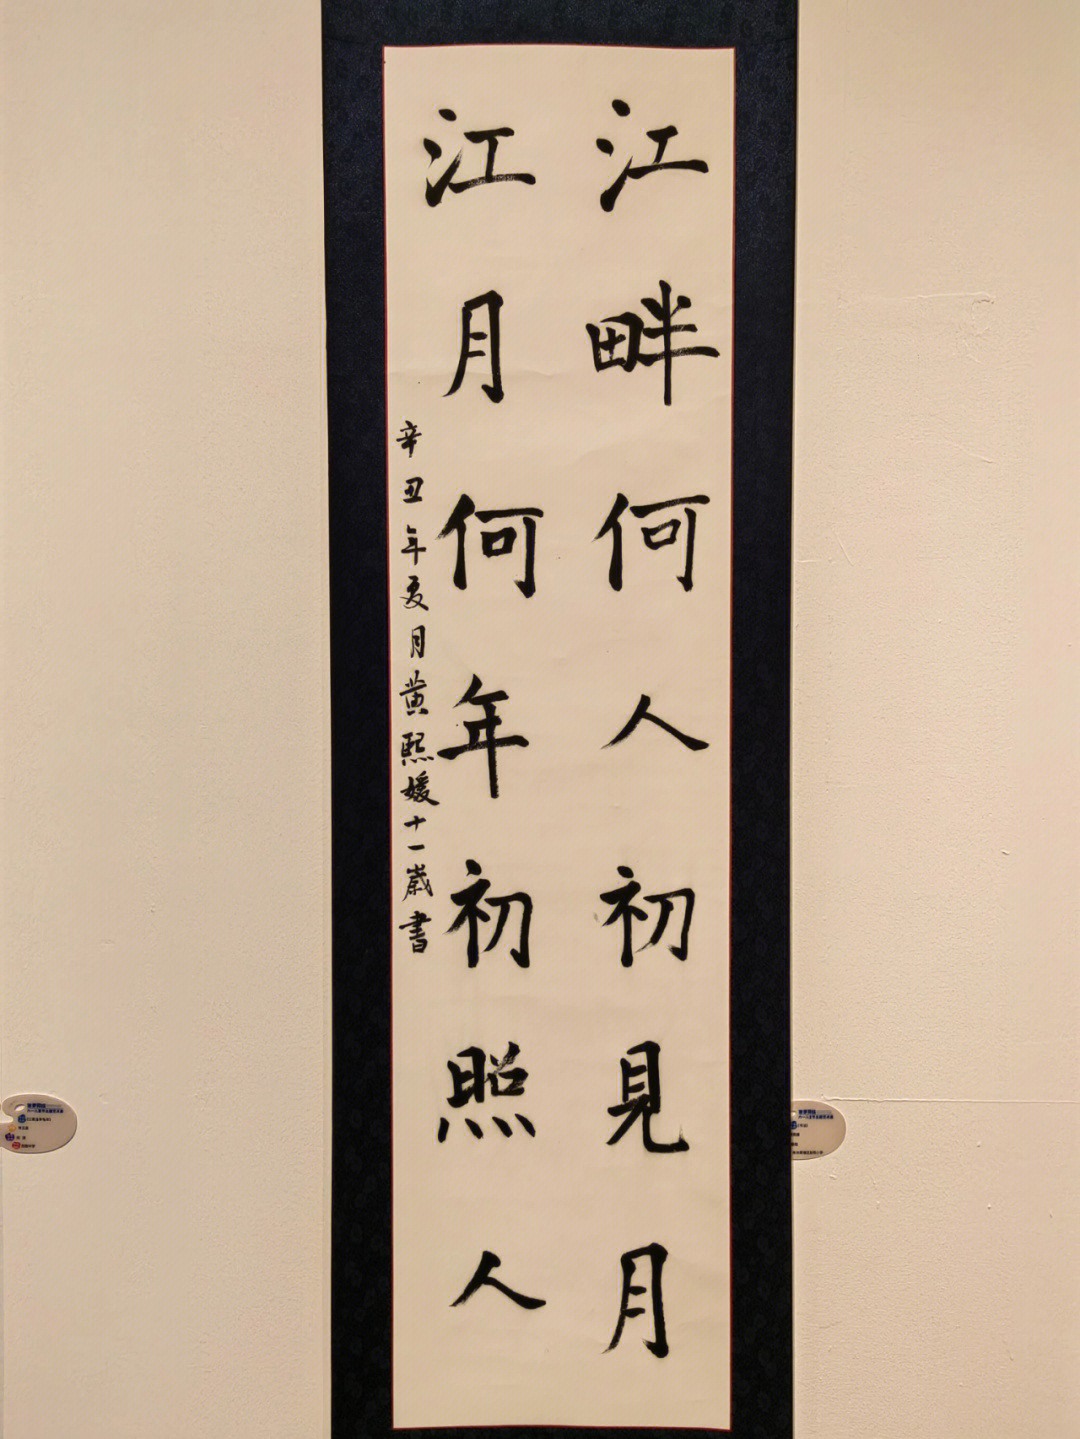 江畔何人初見月
江月何年初照人
辛丑年夏月黄熙媛十一歲書